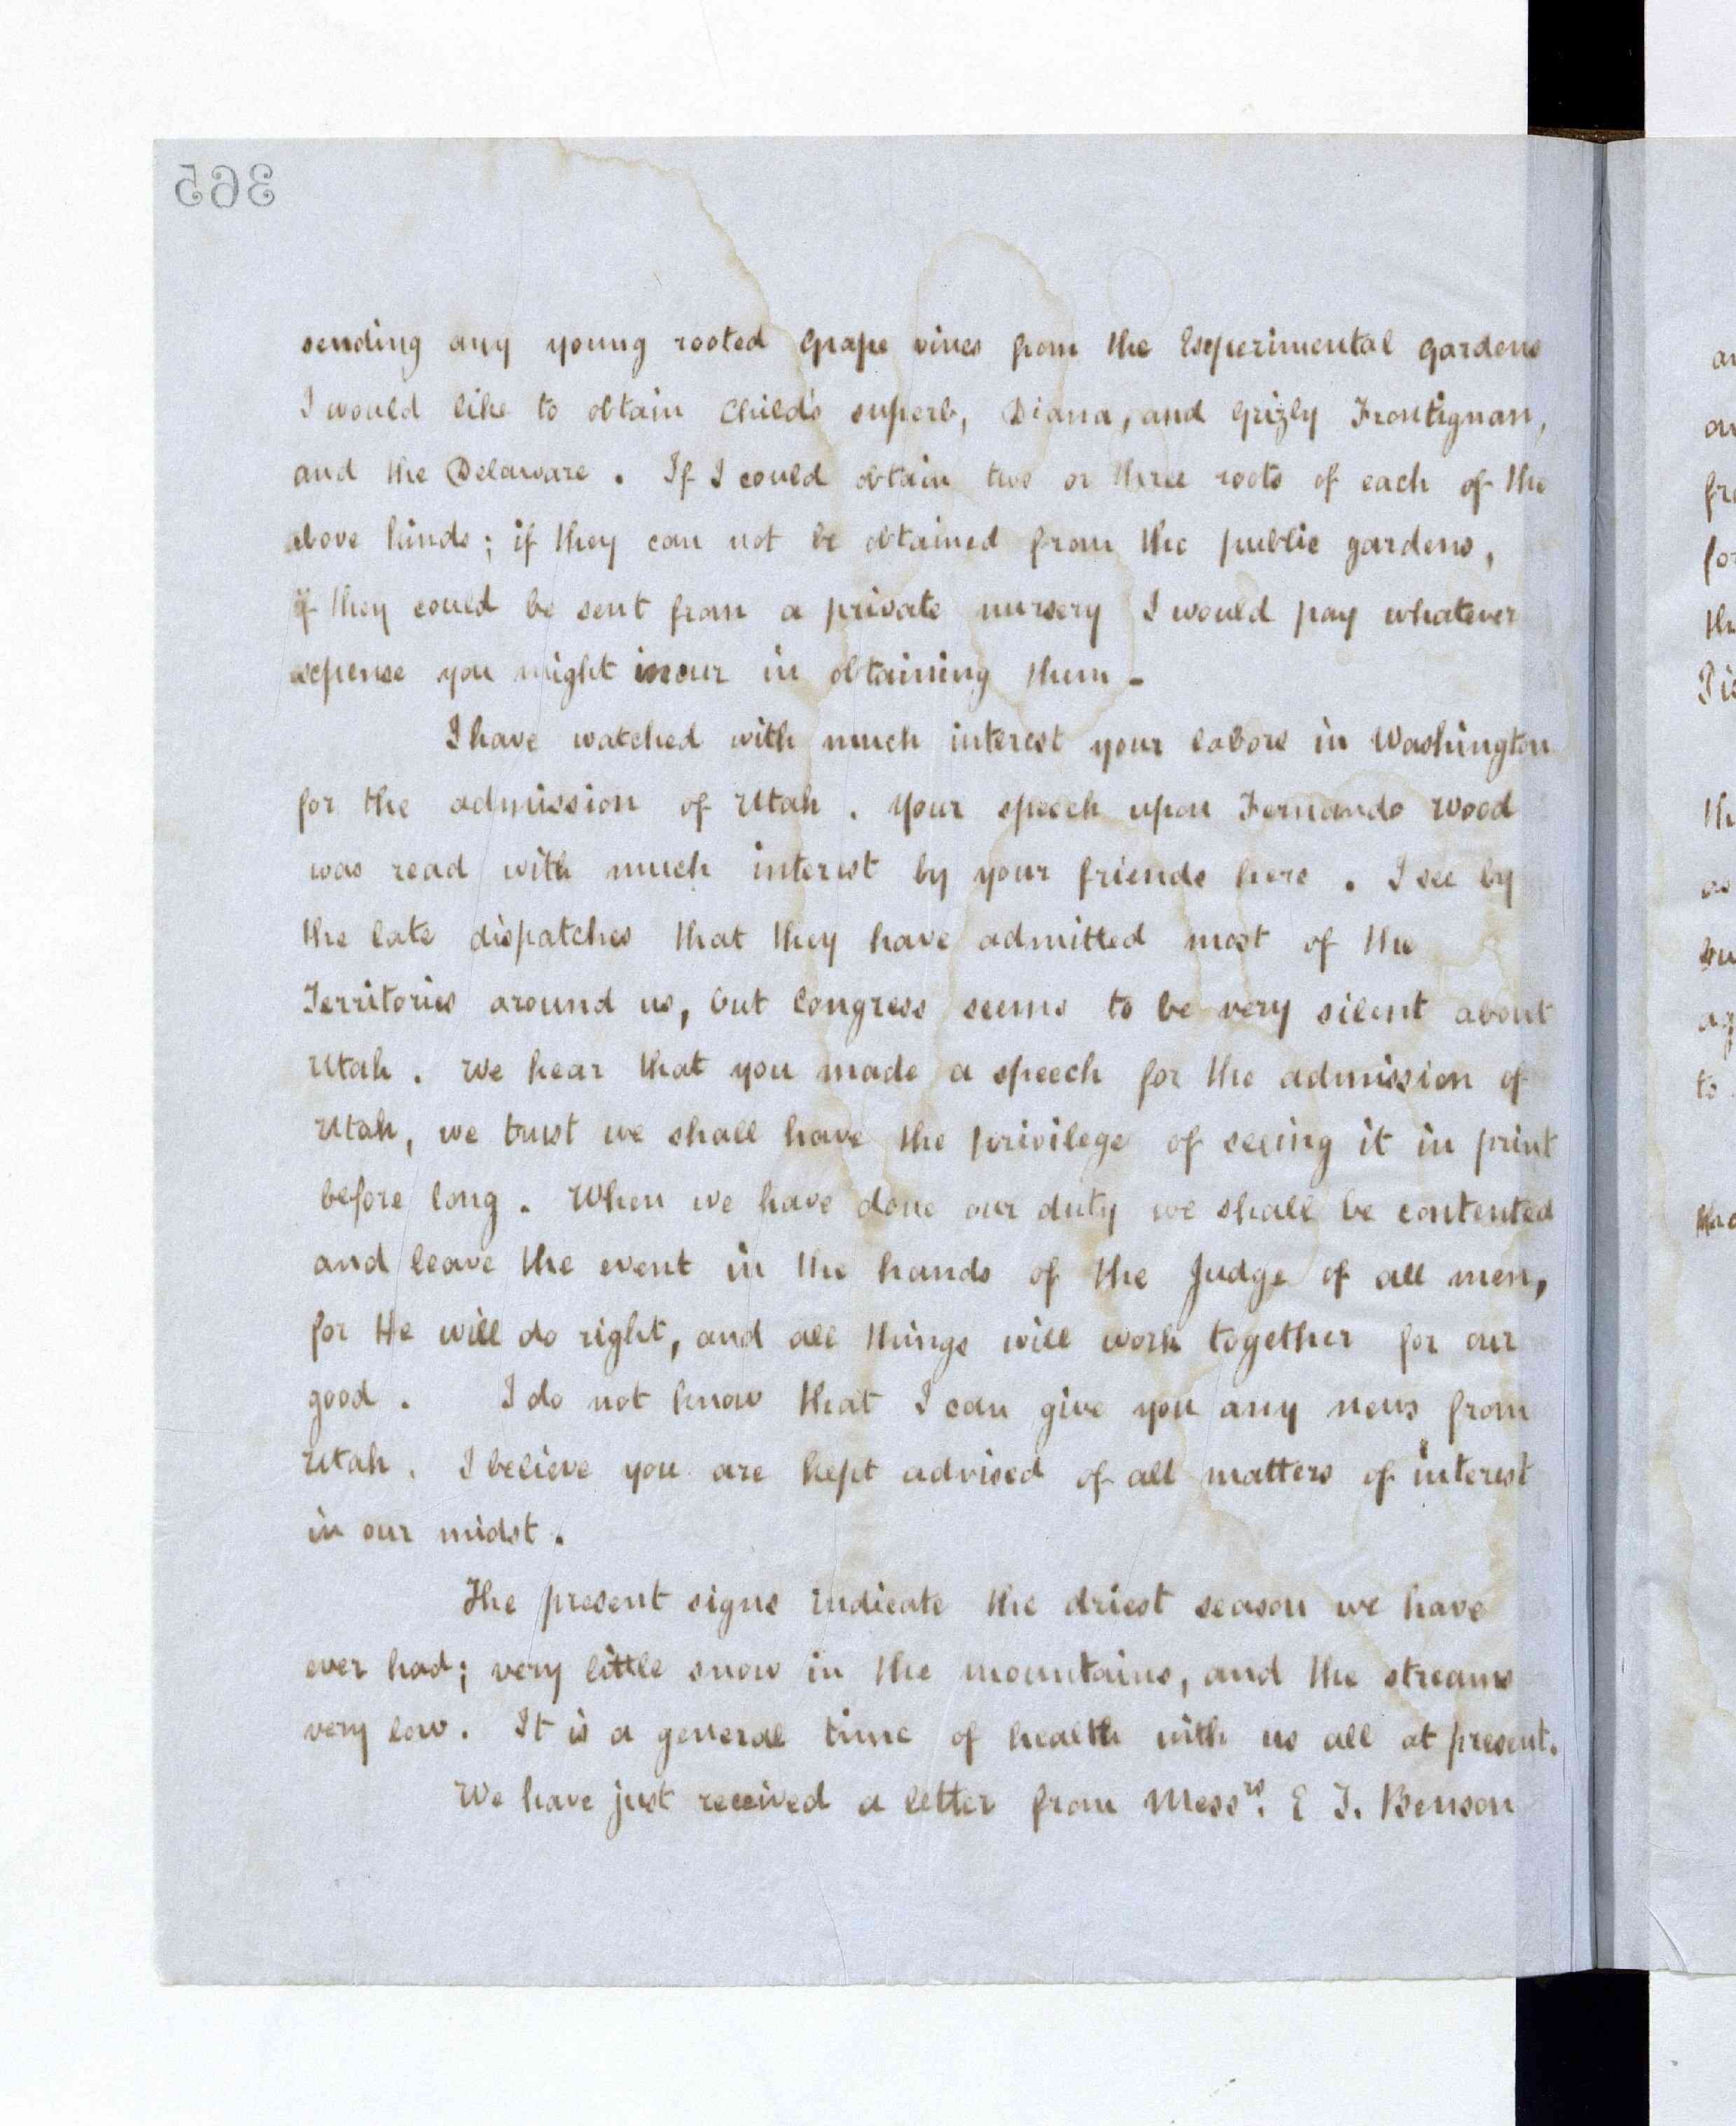 365
sending any young rooted Grape vines from the Experimental Gardens
I would like to obtain Child's superb, Diana, and Grizly Frontignan,
and the Delaware. If I could obtain two or three roots of each of the
above kinds; if they can not be obtained from the public gardens,
if they could be sent from a private nursery I would pay whatever
expense you might incur in obtaining them-
I have watched with much interest your labors in Washington
for the admission of Utah. Your speech upon Fernando Wood
was read with much interest by your friends here. I see by
the late dispatches that they have admitted most of the
Territories around us, but Congress seems to be very silent about
Utah. We hear that you made a speech for the admission of
Utah, we trust we shall have the privilege of seeing it in print
before long. When we have done our duty we shall be contented
and leave the event in the hands of the Judge of all men,
for He will do right, and all things will work together for our
good. I do not know that I can give you any news from
Utah. I believe you are kept advised of all matters of interest
in our midst.
The present signs indicate the driest season we have
ever had; very little snow in the mountains, and the streams
very low. It is a general time of health with us all at present.
We have just received a letter from Messrs. E T. Benson